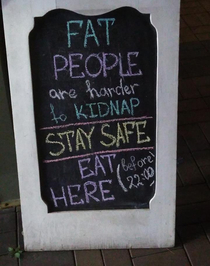 FAT
PEOPLE
are harder
to KIDNAP
STAY SAFE
EAT
HERE
(before
22:00)